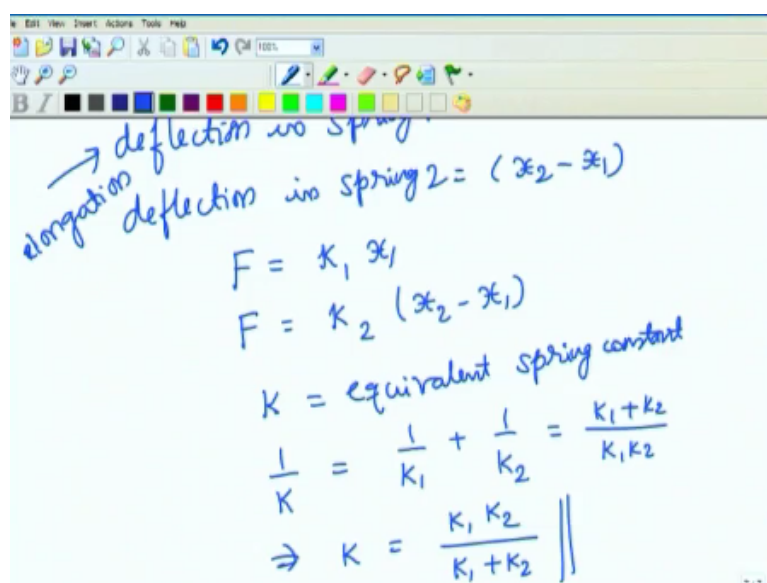 Edit View Insert Actions Tools Help
100%
B I
→ deflection in spring
elongation
deflection in spring 2 = (x₂ - x₁)
F = K₁ x₁
F = K₂ (x₂ - x₁)
K = equivalent spring constant
1/K = 1/K₁ + 1/K₂ = K₁+K₂/K₁K₂
⇒ K = K₁ K₂/K₁+K₂ ||